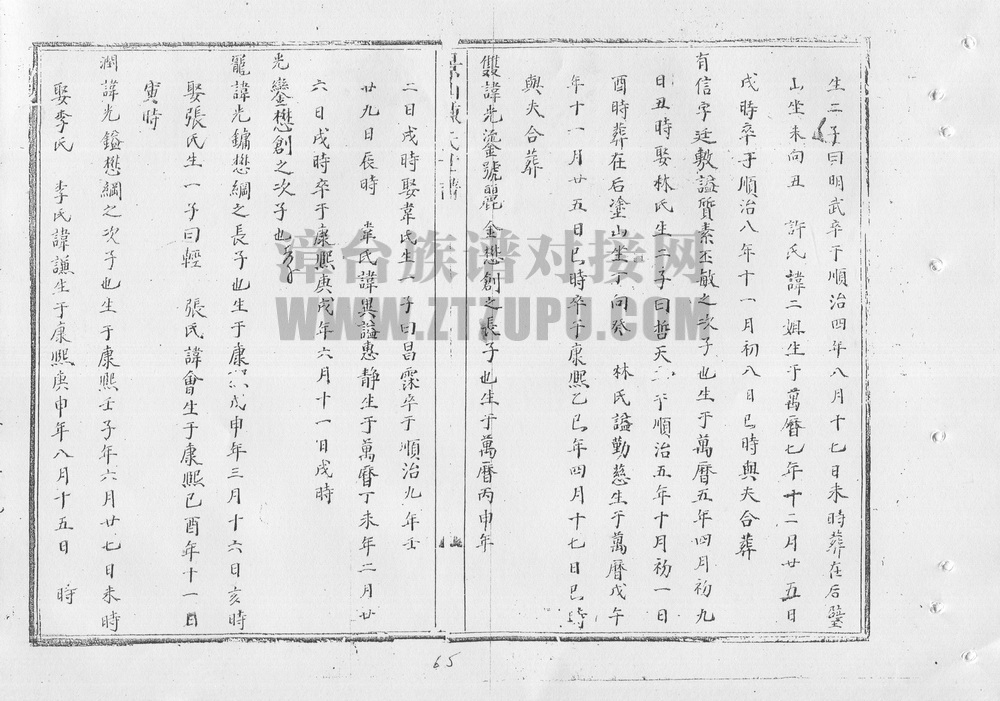 生二子曰明武卒于順治四年八月十七日未時葬在后壁
山坐未向丑 許氏諱二姐生于萬曆七年十二月廿五日
戌時卒于順治八年十一月初八日巳時與夫合葬
有信字廷敷諡質素丕敏之次子也生于萬曆五年四月初九
日丑時娶林氏生二子曰哲天 卒于順治五年十月初一日
酉時葬在后塗山坐丁向癸 林氏諡勤慈生于萬曆戊午
年十一月廿五日巳時卒于康熙乙巳年四月十七日巳時
與夫合葬
雙諱光鎏號麗金懋創之長子也生于萬曆丙申年
陳氏世譜
二日戌時娶韋氏生一子曰昌霖卒于順治九年壬
廿九日辰時 韋氏諱異諡惠靜生于萬曆丁未年二月廿
六日戌時卒于康熙庚戌年六月十一日戌時
光鑾懋創之次子也
寵諱光鏞懋綱之長子也生于康熙戊申年三月十六日亥時
娶張氏生一子曰輕 張氏諱會生于康熙己酉年十一日
寅時
潤諱光鎰懋綱之次子也生于康熙壬子年六月廿七日未時
娶李氏 李氏諱謙生于康熙庚申年八月十五日 時
65
漳台族谱对接网
WWW.ZTZUPU.COM